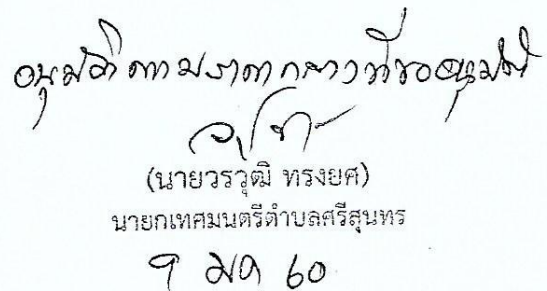 อนุมัติตามราคากลางที่ขออนุมัติ
(นายวรวุฒิ ทรงยศ)
นายกเทศมนตรีตำบลศรีสุนทร
9 มค 60